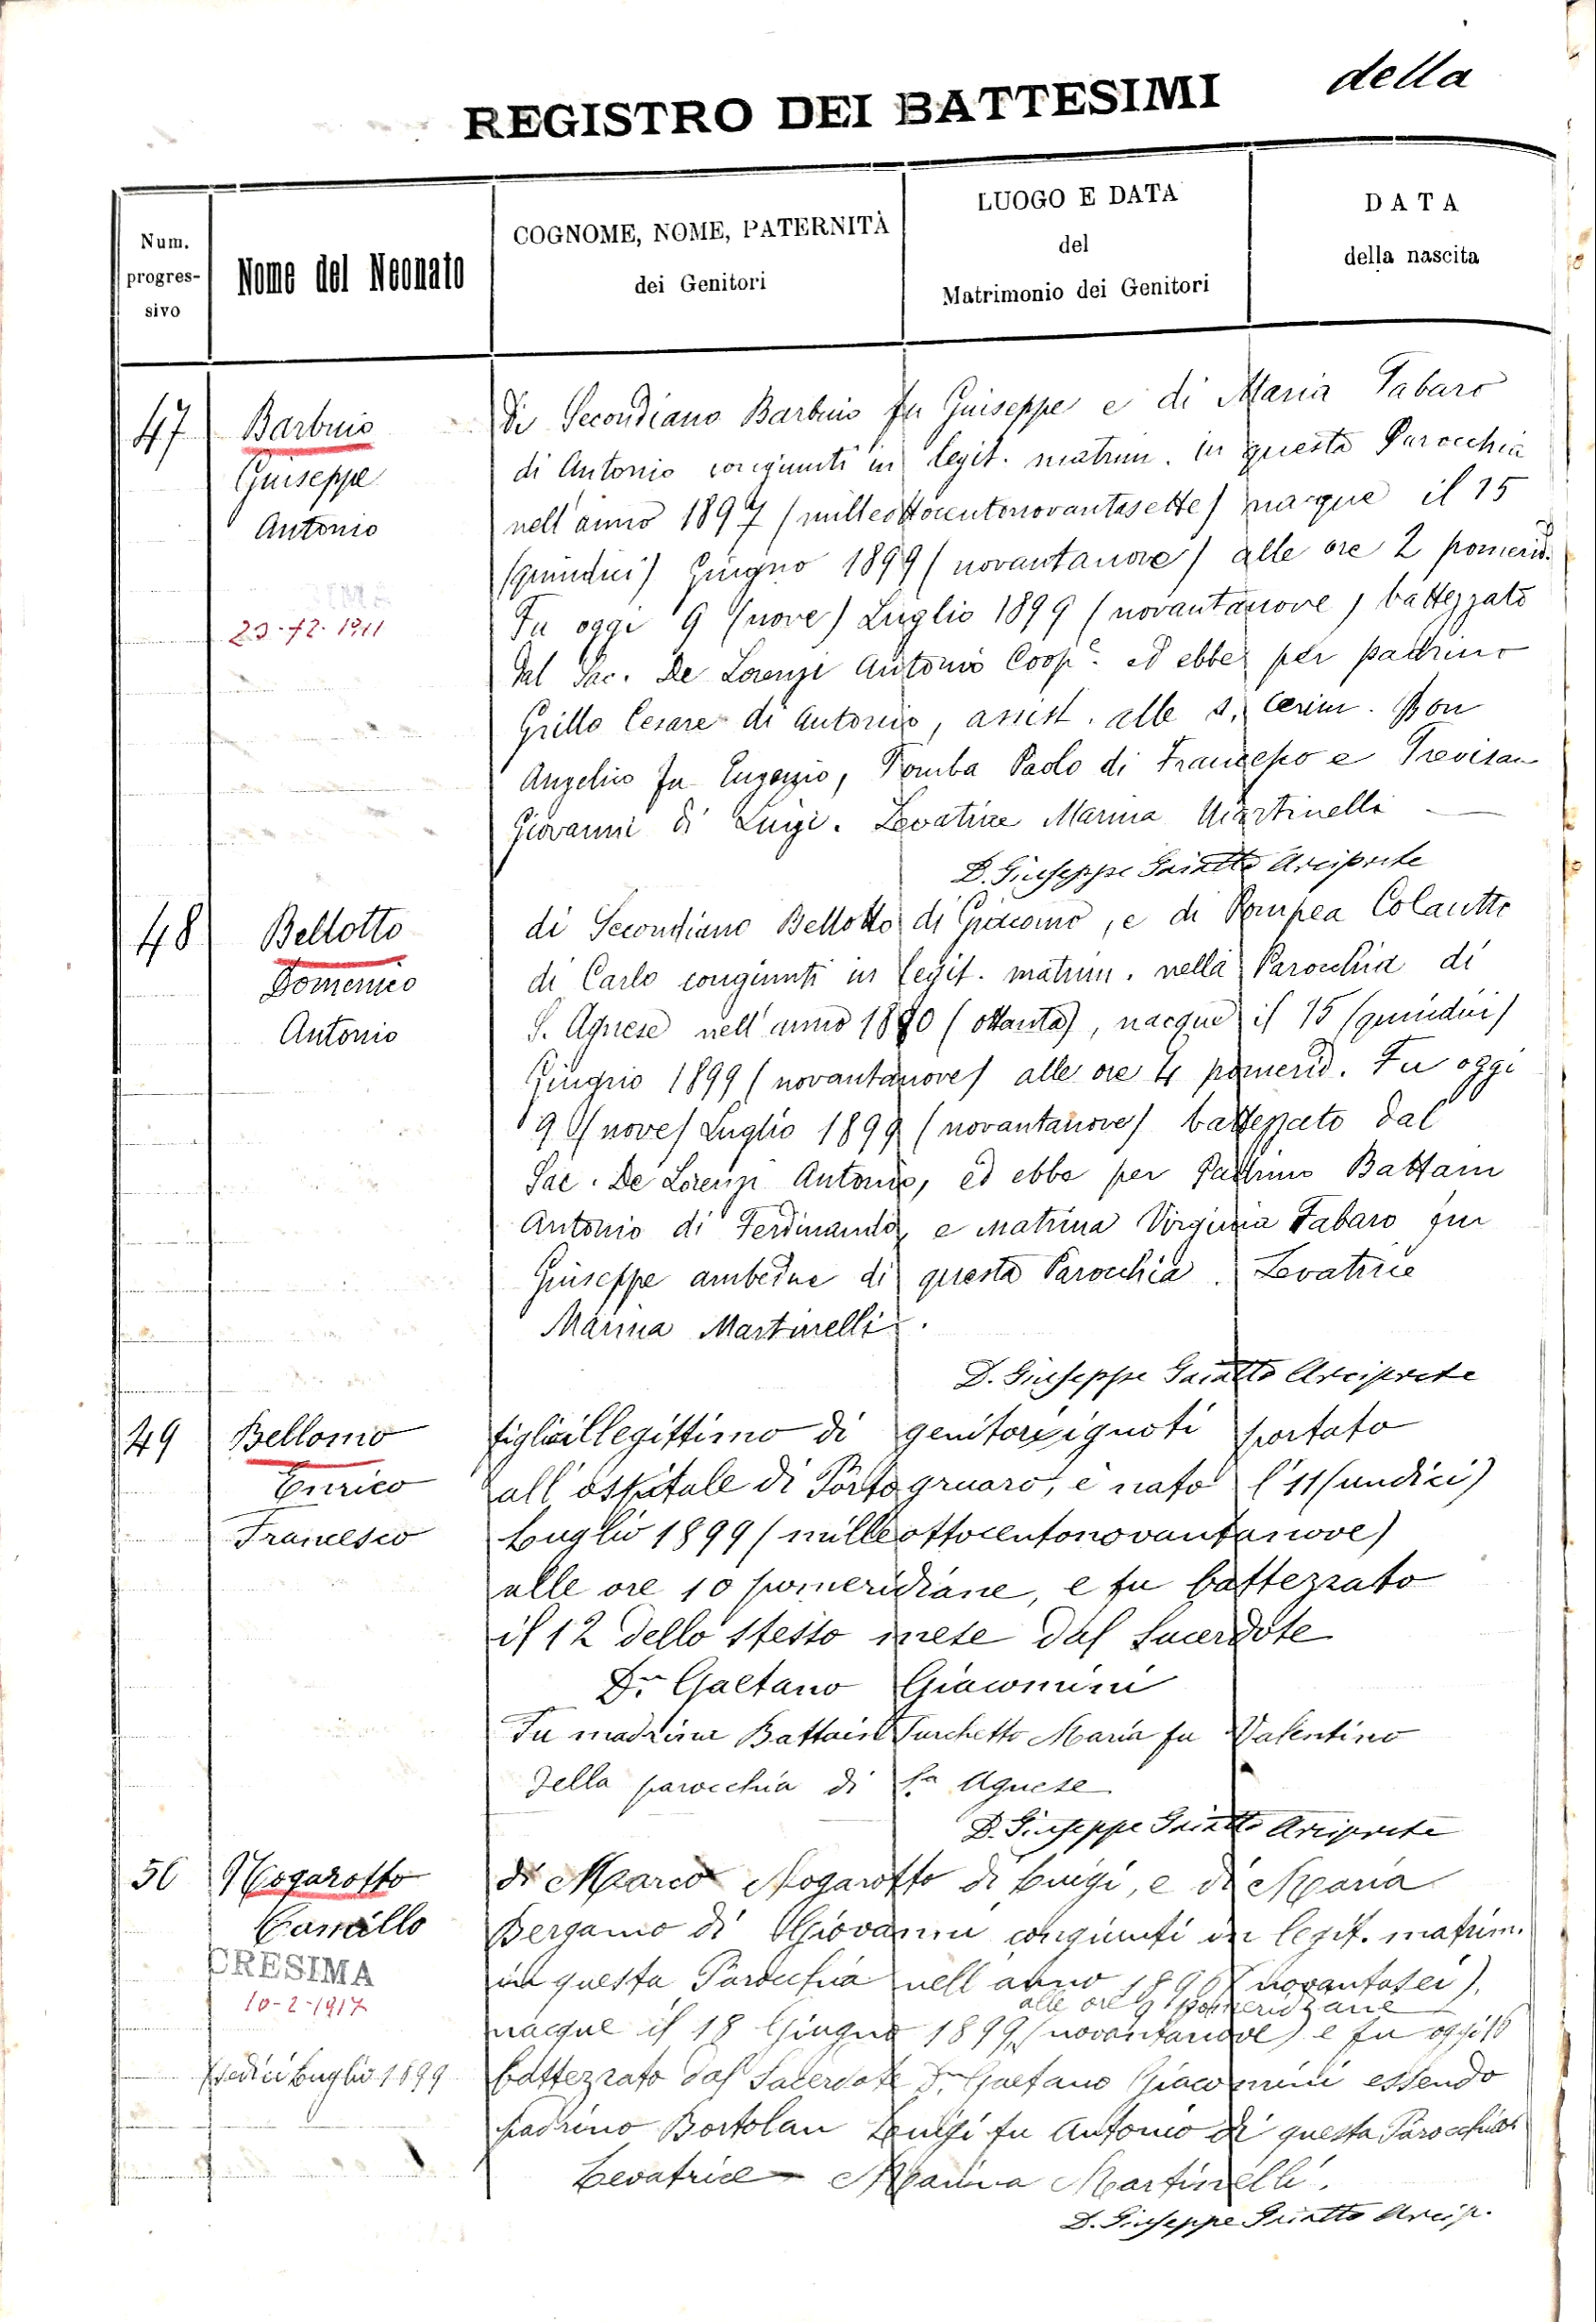 della
REGISTRO DEI BATTESIMI
Num.
progres-
sivo
Nome del Neonato
COGNOME, NOME, PATERNITÀ
dei Genitori
LUOGO E DATA
del
Matrimonio dei Genitori
DATA
della nascita
47
Barbuio
Giuseppe
Antonio
23-12-1911
di Secondiano Barbuio fu Giuseppe e di Maria Tabaro
di Antonio congiunti in legit. matrim. in questa Parocchia
nell'anno 1897 (milleottocentonovantasette) nacque il 15
(quindici) Giugno 1899 (novantanove) alle ore 2 pomerid.
Fu oggi 9 (nove) Luglio 1899 (novantanove) battezzato
dal Sac. De Lorenzi Antonio Coop.e ed ebbe per padrino
Grillo Cesare di Antonio, assist. alle s. cerim. Bon
Angelico fu Eugenio, Tomba Paolo di Francesco e Trevisan
Giovanni di Luigi. Levatrice Marina Martinelli
D. Giuseppe Gaiatto Arciprete
48
Bellotto
Domenico
Antonio
di Secondiano Bellotto di Giacomo, e di Pompea Colautto
di Carlo congiunti in legit. matrim. nella Parocchia di
S. Agnese nell'anno 1880 (ottanta), nacque il 15 (quindici)
Giugno 1899 (novantanove) alle ore 4 pomerid. Fu oggi
9 (nove) Luglio 1899 (novantanove) battezzato dal
Sac. De Lorenzi Antonio, ed ebbe per Padrino Battain
Antonio di Ferdinando, e matrina Virginia Tabaro fu
Giuseppe ambedue di questa Parocchia. Levatrice
Marina Martinelli.
D. Giuseppe Gaiatto Arciprete
49
Bellomo
Enrico
Francesco
figlio illegittimo di genitori ignoti portato
all'ospitale di Portogruaro, è nato l'11 (undici)
Luglio 1899 (milleottocentonovantanove)
alle ore 10 pomeridiane, e fu battezzato
il 12 dello stesso mese dal Sacerdote
D.n Gaetano Giacomini
Fu madrina Battain Turchetto Maria fu Valentino
della parocchia di S.a Agnese
D. Giuseppe Gaiatto Arciprete
50
Nogarotto
Camillo
CRESIMA
10-2-1917
sedici Luglio 1899
di Marco Nogarotto di Luigi, e di Maria
Bergamo di Giovanni congiunti in legit. matrim.
in questa Parocchia nell'anno 1896 (novantasei),
alle ore 9 pomeridiane
nacque il 18 Giugno 1899 (novantanove) e fu oggi 16
battezzato dal Sacerdote D.n Gaetano Giacomini essendo
padrino Bortolan Luigi fu Antonio di questa Parocchia
Levatrice Marina Martinelli.
D. Giuseppe Gaiatto Arcip.